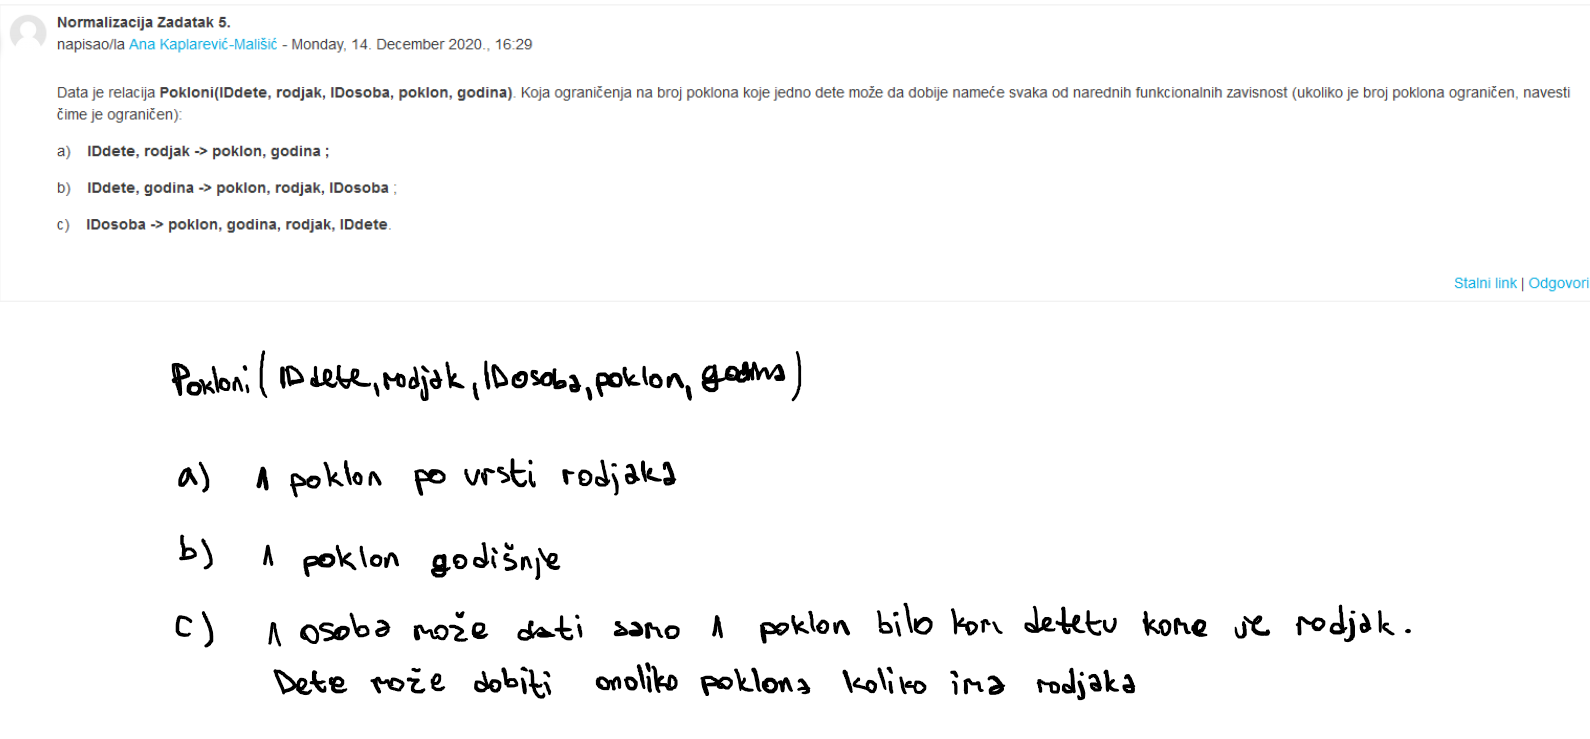 Normalizacija Zadatak 5.
napisao/la Ana Kaplarević-Mališić - Monday, 14. December 2020., 16:29
Data je relacija Pokloni(IDdete, rodjak, IDosoba, poklon, godina). Koja ograničenja na broj poklona koje jedno dete može da dobije nameće svaka od narednih funkcionalnih zavisnost (ukoliko je broj poklona ograničen, navesti
čime je ograničen):
a) IDdete, rodjak -> poklon, godina ;
b) IDdete, godina -> poklon, rodjak, IDosoba ;
c) IDosoba -> poklon, godina, rodjak, IDdete.
Stalni link | Odgovori
Pokloni(IDdete, rodjak, IDosoba, poklon, godina)
a) 1 poklon po vrsti rodjaka
b) 1 poklon godišnje
c) 1 osoba može dati samo 1 poklon bilo kom detetu kome je rodjak.
Dete može dobiti onoliko poklona koliko ima rodjaka